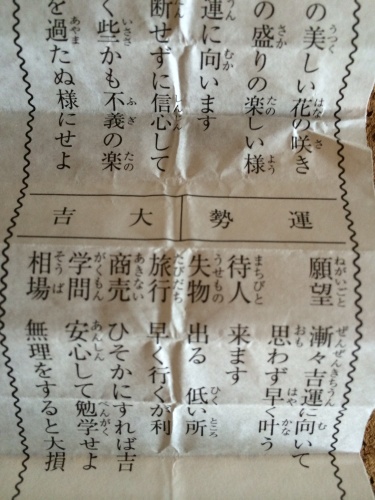 の美しい花の咲き
の盛りの楽しい様
運に向います
断せずに信心して
く些かも不義の楽
を過たぬ様にせよ
運勢大吉
願望 漸々吉運に向いて
思わず早く叶う
待人 来ます
失物 出る 低い所
旅行 早く行くが利
商売 ひそかにすれば吉
学問 安心して勉学せよ
相場 無理をすると大損